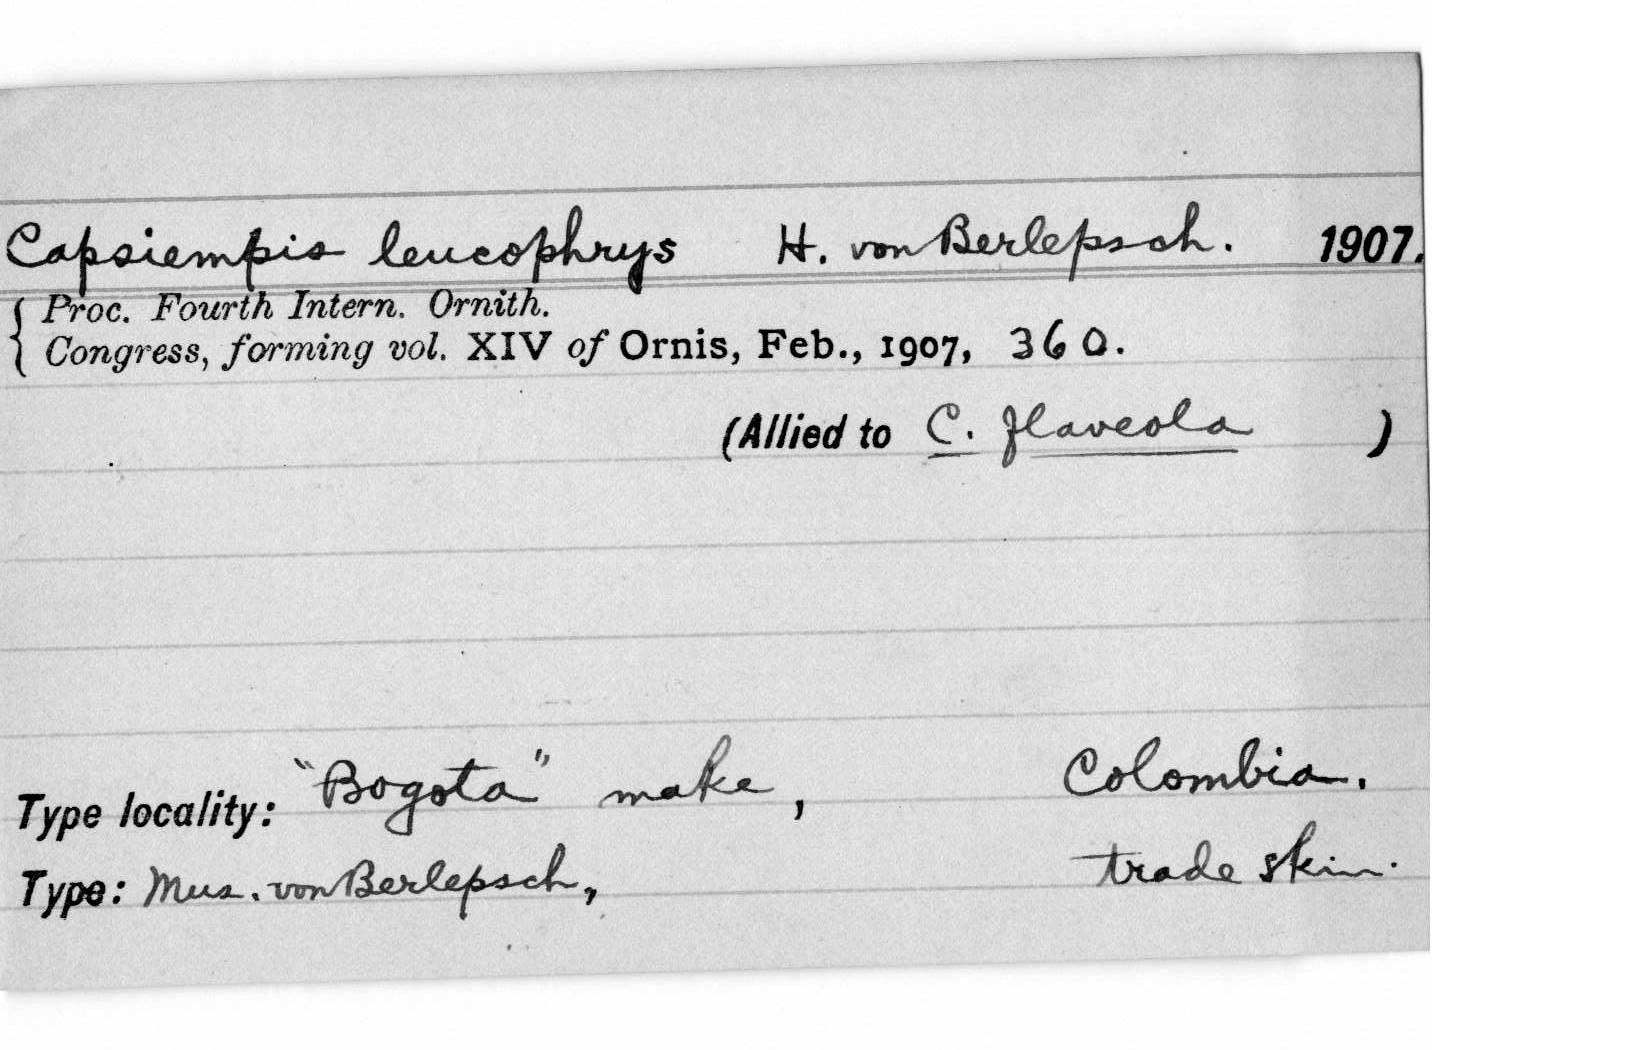 Capsiempis leucophrys H. von Berlepsch. 1907.
{ Proc. Fourth Intern. Ornith.
Congress, forming vol. XIV of Ornis, Feb., 1907, 360.
(Allied to C. flaveola )
Type locality: "Bogota" make, Colombia.
Type: Mus. von Berlepsch, trade skin.